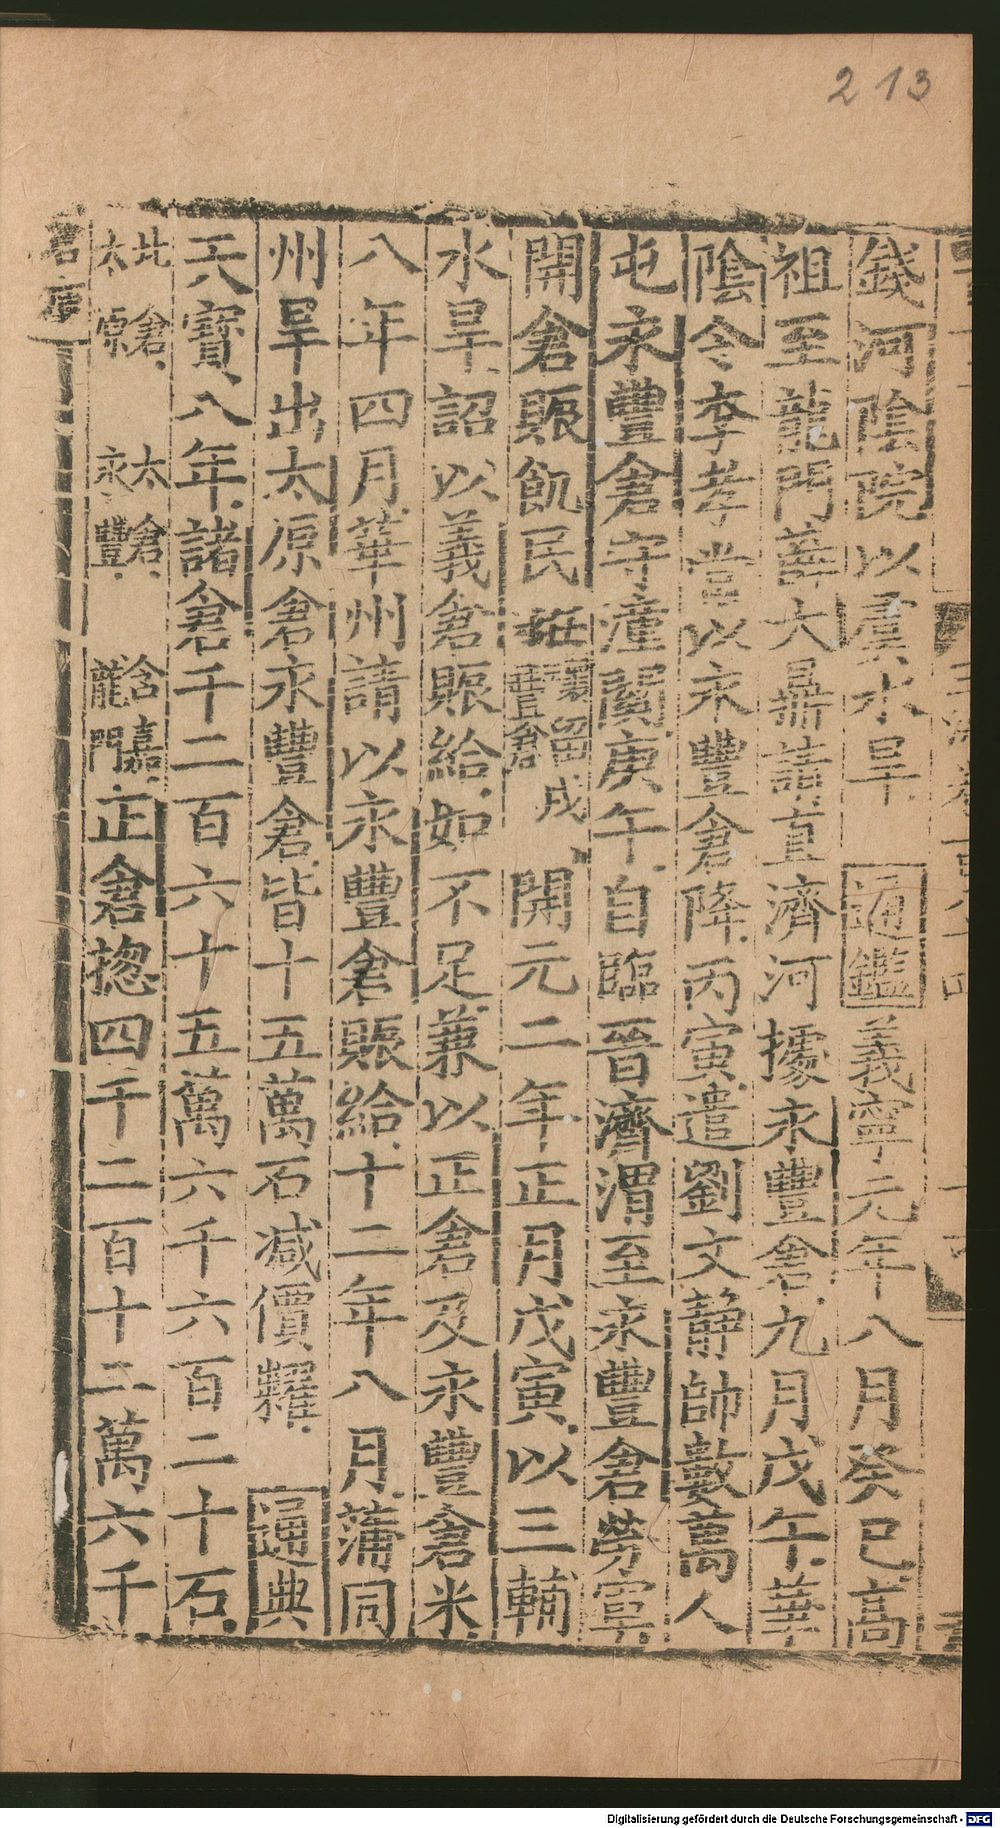 213
錢河陰院以虞水旱 通鑑義寧元年八月癸巳高
祖至龍門薛大鼎請直濟河據永豐倉九月戊午華
陰令李孝常以永豐倉降丙寅遣劉文靜帥數萬人
屯永豐倉守潼關庚午自臨晉濟渭至永豐倉勞軍
開倉賑飢民 留戍豐倉 開元二年正月戊寅以三輔
水旱詔以義倉賑給如不足兼以正倉及永豐倉米
八年四月華州請以永豐倉賑給十二年八月蒲同
州旱出太原倉永豐倉皆十五萬石減價糶 通典
天寶八年諸倉千二百六十五萬六千六百二十石
北倉 太倉 含嘉 太原 永豐 龍門 正倉揔四千二百十二萬六千
倉庫
Digitalisierung gefördert durch die Deutsche Forschungsgemeinschaft - DFG